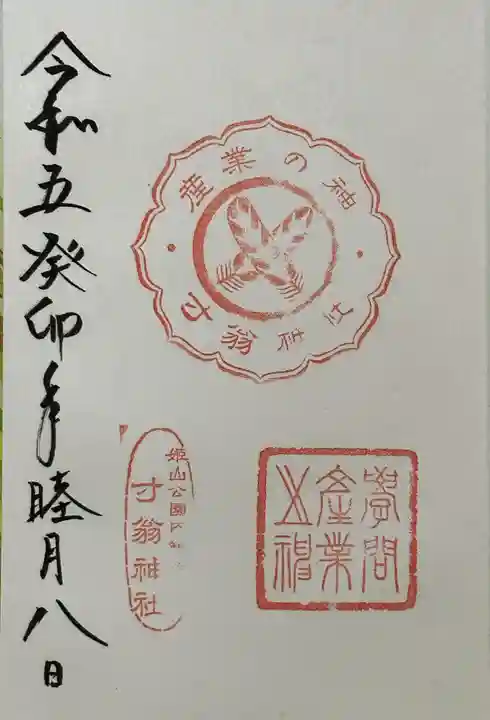 産業の神
寸翁神社
學問
產業
之神
姫山公園内
寸翁神社
令和五癸卯年睦月八日